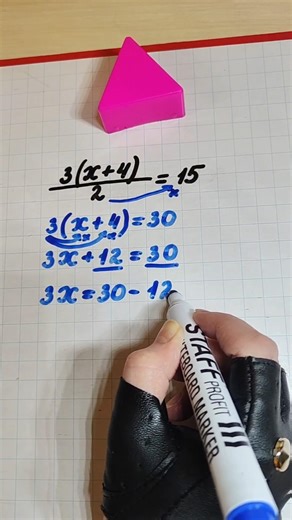 3(x+4)/2 = 15
3(x+4) = 30
3x + 12 = 30
3x = 30 - 12
STAFF PROFIT
WHITEBOARD MARKER